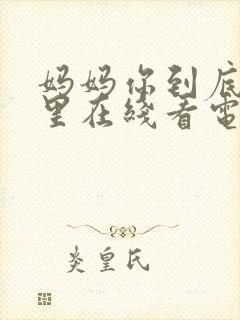 妈妈你到底
里在线看电
炎皇氏